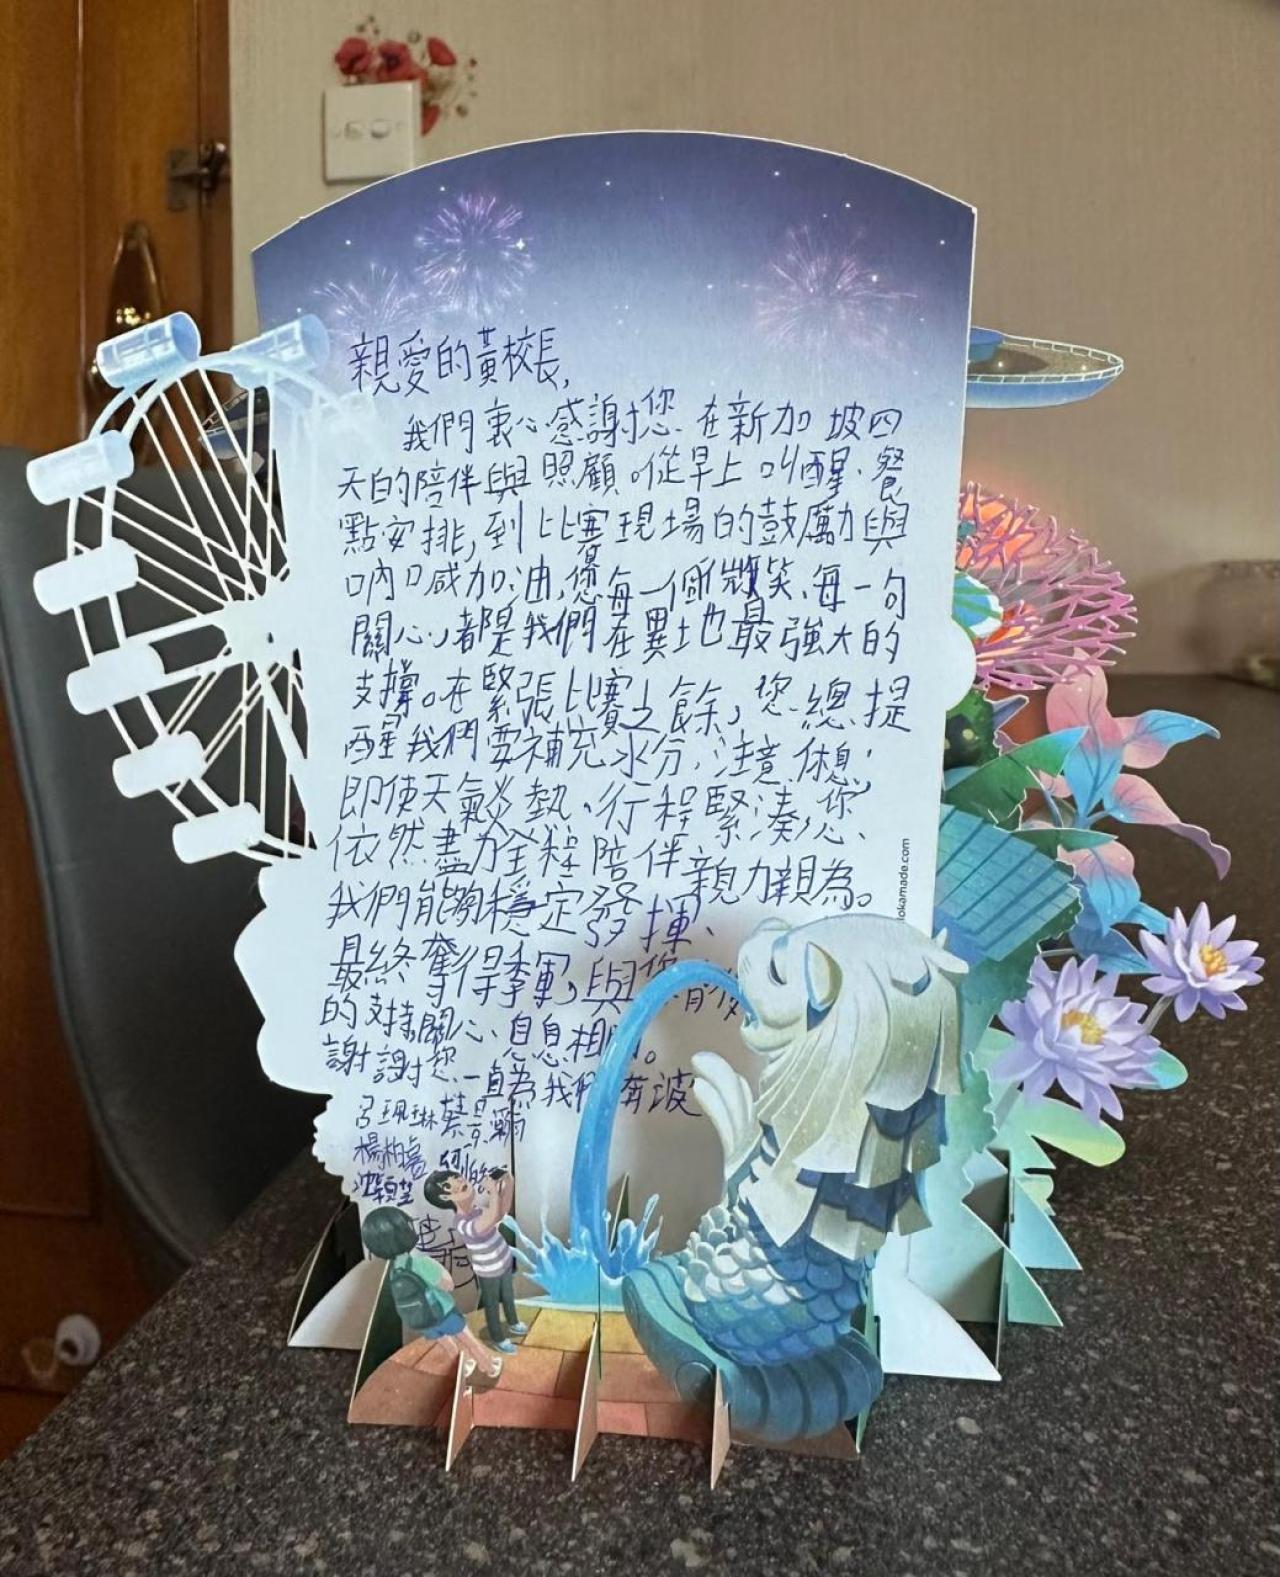 親愛的黃校長,
我們衷心感謝您在新加坡四
天的陪伴與照顧。從早上叫醒、餐
點安排,到比賽現場的鼓勵與
吶喊加油,您每一個微笑、每一句
關心,都是我們在異地最強大的
支撐。在緊張比賽之餘,您總提
醒我們要補充水分、注意休息;
即使天氣炎熱、行程緊湊,您
依然盡力全程陪伴親力親為。
我們能夠穩定發揮、
最終奪得季軍,與您背後
的支持關心息息相。
謝謝您一直為我們奔波
呂珮琳蔡
楊柏
沈穎芝
lokamade.com